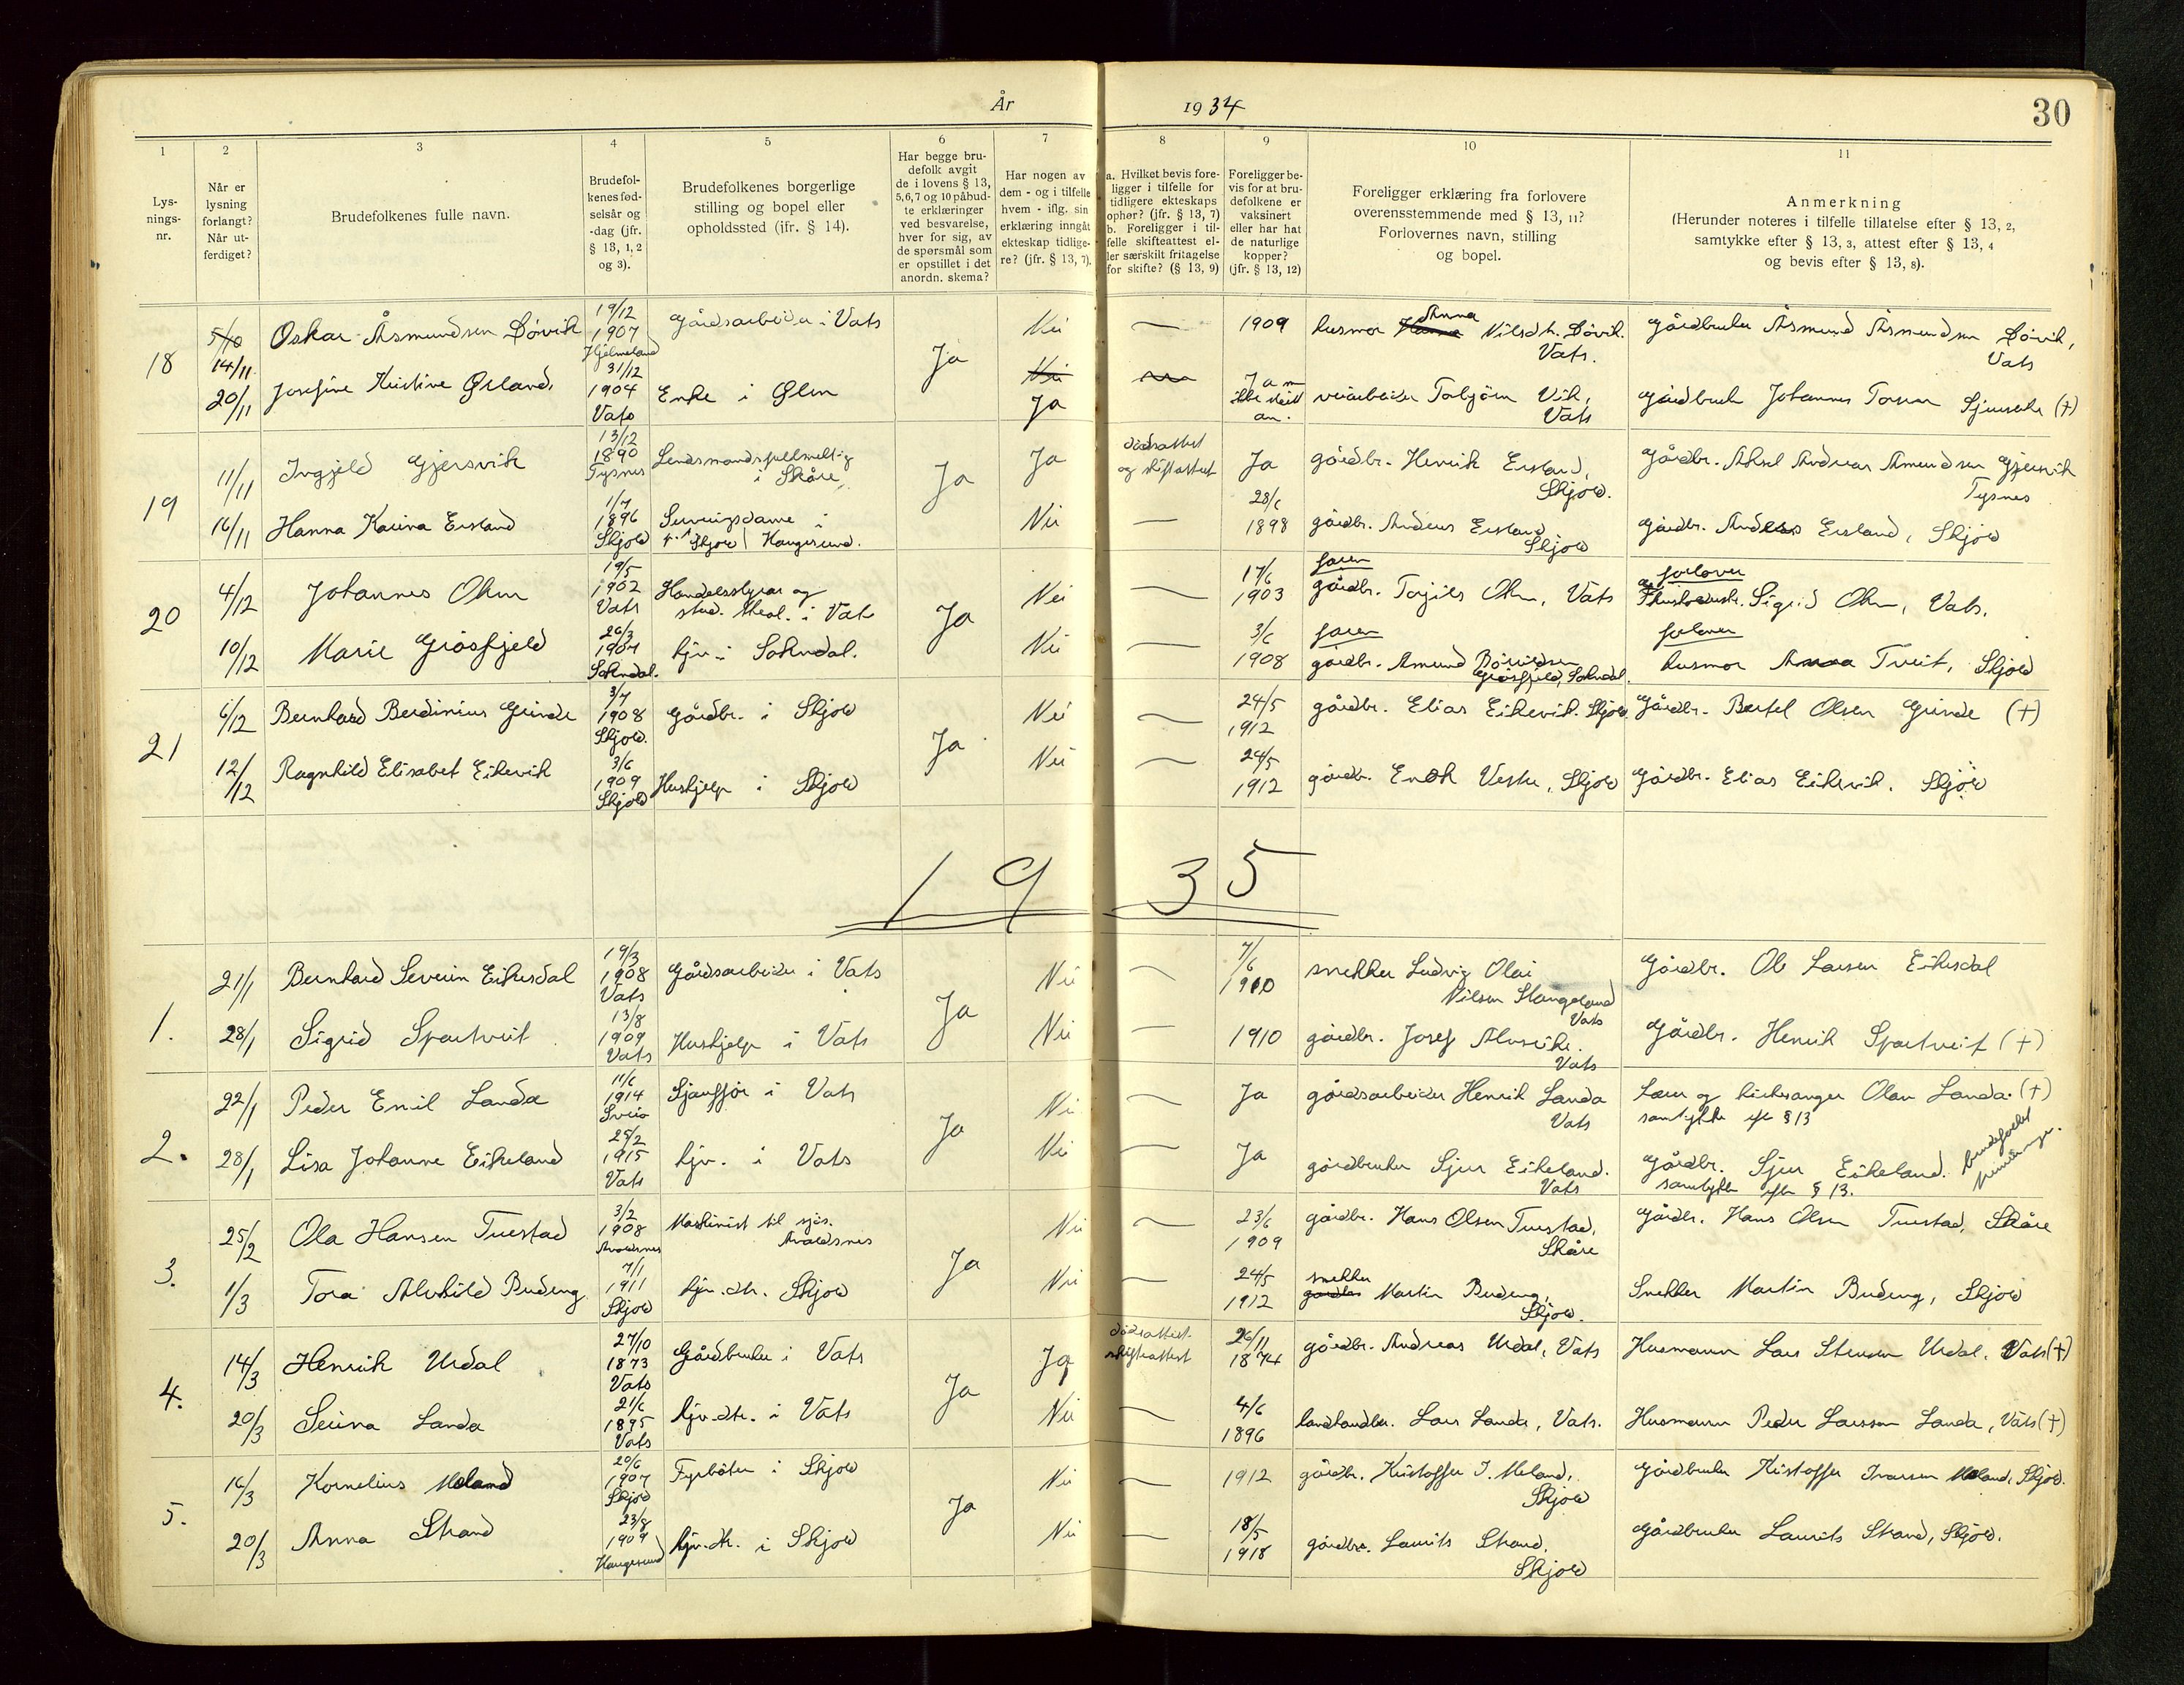 År 1934
30
1
2
3
4
5
6
7
8
9
10
11
Lys-
nings-
nr.
Når er
lysning
forlangt?
Når ut-
ferdiget?
Brudefolkenes fulle navn.
Brudefol-
kenes fød-
selsår og
-dag (jfr.
§ 13, 1, 2
og 3).
Brudefolkenes borgerlige
stilling og bopel eller
opholdssted (jfr. § 14).
Har begge bru-
defolk avgit
de i lovens § 13,
5,6,7 og 10 påbud-
te erklæringer
ved besvarelse,
hver for sig, av
de spørsmål som
er opstillet i det
anordn. skema?
Har nogen av
dem - og i tilfelle
hvem - iflg. sin
erklæring inngåt
ekteskap tidlige-
re? (jfr. § 13, 7).
a. Hvilket bevis fore-
ligger i tilfelle for
tidligere ekteskaps
ophør? (jfr. § 13, 7)
b. Foreligger i til-
felle skifteattest el-
ler særskilt fritagelse
for skifte? (§ 13, 9)
Foreligger be-
vis for at bru-
defolkene er
vaksinert
eller har hat
de naturlige
kopper?
(jfr. § 13, 12)
Foreligger erklæring fra forlovere
overensstemmende med § 13, 11?
Forlovernes navn, stilling
og bopel.
Anmerkning
(Herunder noteres i tilfelle tillatelse efter § 13, 2,
samtykke efter § 13, 3, attest efter § 13, 4
og bevis efter § 13, 8).
18
14/11
20/11
Oskar Åsmundsen Døvik
19/12
1907
Hjelmeland
Gårdsarbeider i Vats
Ja
Nei
—
1909
husmor Anna Nilsdt. Døvik.
Vats.
Gårdbruker Åsmund Åsmundsen Døvik,
Vats
Josefine Kristine Ørland.
31/12
1904
Vats
Enke i Ølen
Nei
Ja
veiarbeider Torbjörn Vik,
Vats
Gårdbruker Johannes Toresen (†)
19
11/11
16/11
Ingjeld Gjersvik
13/12
1890
Tysnes
Lensmandsfullmektig
i Skåre
Ja
Ja
dødsattest
og skifteattest
Ja
gårdbr. Henrik Ersland,
Skjold.
Gårdbr. Aksel Andreas Amundsen Gjersvik
Tysnes
Hanna Karina Ersland
1/7
1896
Skjold
Serveringsdame i
Skjold / Haugesund.
Nei
—
28/6
1898
gårdbr. Andreas Ersland
Skjold
Gårdbr. Andreas Ersland, Skjold
20
4/12
10/12
Johannes Ohm
19/5
1902
Vats
Handelsstyrar og
stud. theol. i Vats
Ja
Nei
—
17/6
1903
faren
gårdbr. Torgils Ohm, Vats
forlover
Sigrid Ohm, Vats.
Marie Gråsfjeld
26/3
1907
Sokndal.
hjv. i Sokndal.
Nei
—
3/6
1908
faren
gårdbr. Amund Bårdsen
Gråsfjeld, Sokndal.
forlover
husmor Anna Tveit, Skjold
21
6/12
12/12
Bernhard Berdinius Grinde
3/7
1908
Skjold.
Gårdbr. i Skjold
Ja
Nei
—
24/5
1912
gårdbr. Elias Eikevik. Skjold
Gårdbr. Bertel Olsen Grinde (†)
Ragnhild Elisabet Eikevik
3/6
1909
Skjold
Hushjelp i Skjold
Nei
—
24/5
1912
gårdbr. Enok Vestre, Skjold
Gårdbr. Elias Eikevik. Skjold
1935
1.
21/1
28/1
Bernhard Severin Eikesdal
19/3
1908
Vats
Gårdsarbeider i Vats
Ja
Nei
—
7/6
1910
snekker Ludvig Olai
Nilsen Stangeland
Vats
Gårdbr. Ole Larsen Eikesdal
Sigrid Spartveit
13/8
1909
Vats
Hushjelp i Vats
Nei
—
1910
gårdbr. Josef Alvseike.
Vats
Gårdbr. Henrik Spartveit (†)
2.
22/1
28/1
Peder Emil Landa
11/6
1914
Sveio
Sjauffør i Vats
Ja
Nei
—
Ja
gårdsarbeider Henrik Landa
Vats
Lærer og kirkesanger Olav Landa. (†)
samtykke efter § 13
Lisa Johanne Eikeland
25/2
1915
Vats
hjv. i Vats
Nei
—
Ja
gårdbruker Sjur Eikeland.
Vats
Gårdbr. Sjur Eikeland.
samtykke efter § 13.
3.
25/2
1/3
Ola Hansen Tuestad
3/2
1908
Avaldsnes
Maskinist til sjøs.
Avaldsnes
Ja
Nei
—
23/6
1909
gårdbr. Hans Olsen Tuestad.
Skåre
Gårdbr. Hans Olsen Tuestad, Skåre
Tora Alvhild Budeng
7/1
1911
Skjold
hjv. dtr. Skjold
Nei
—
24/5
1912
snekker
Martin Budeng,
Skjold.
Snekker Martin Budeng, Skjold
4.
14/3
20/3
Henrik Urdal
27/10
1873
Vats
Gårdbruker i Vats
Ja
Ja
dødsattest.
skifteattest
26/11
1874
gårdbr. Andreas Urdal, Vats
Husmann Lars Stensen Urdal. Vats (†)
Serina Landa
21/6
1895
Vats
hjv. dtr. i Vats
Nei
—
4/6
1896
landhandler. Lars Landa, Vats.
Husmann Peder Larsson Landa, Vats (†)
5.
16/3
20/3
Kornelius Meland
20/6
1907
Skjold
Fyrbøter i Skjold
Ja
Nei
—
1912
gårdbr. Kristoffer I. Meland,
Skjold
Gårdbruker Kristoffer Ivarsen Meland, Skjold.
Anna Strand
23/8
1909
Haugesund
hjv. dtr. i Skjold
Nei
—
18/5
1918
gårdbr. Laurits Strand.
Skjold
Gårdbruker Laurits Strand, Skjold.